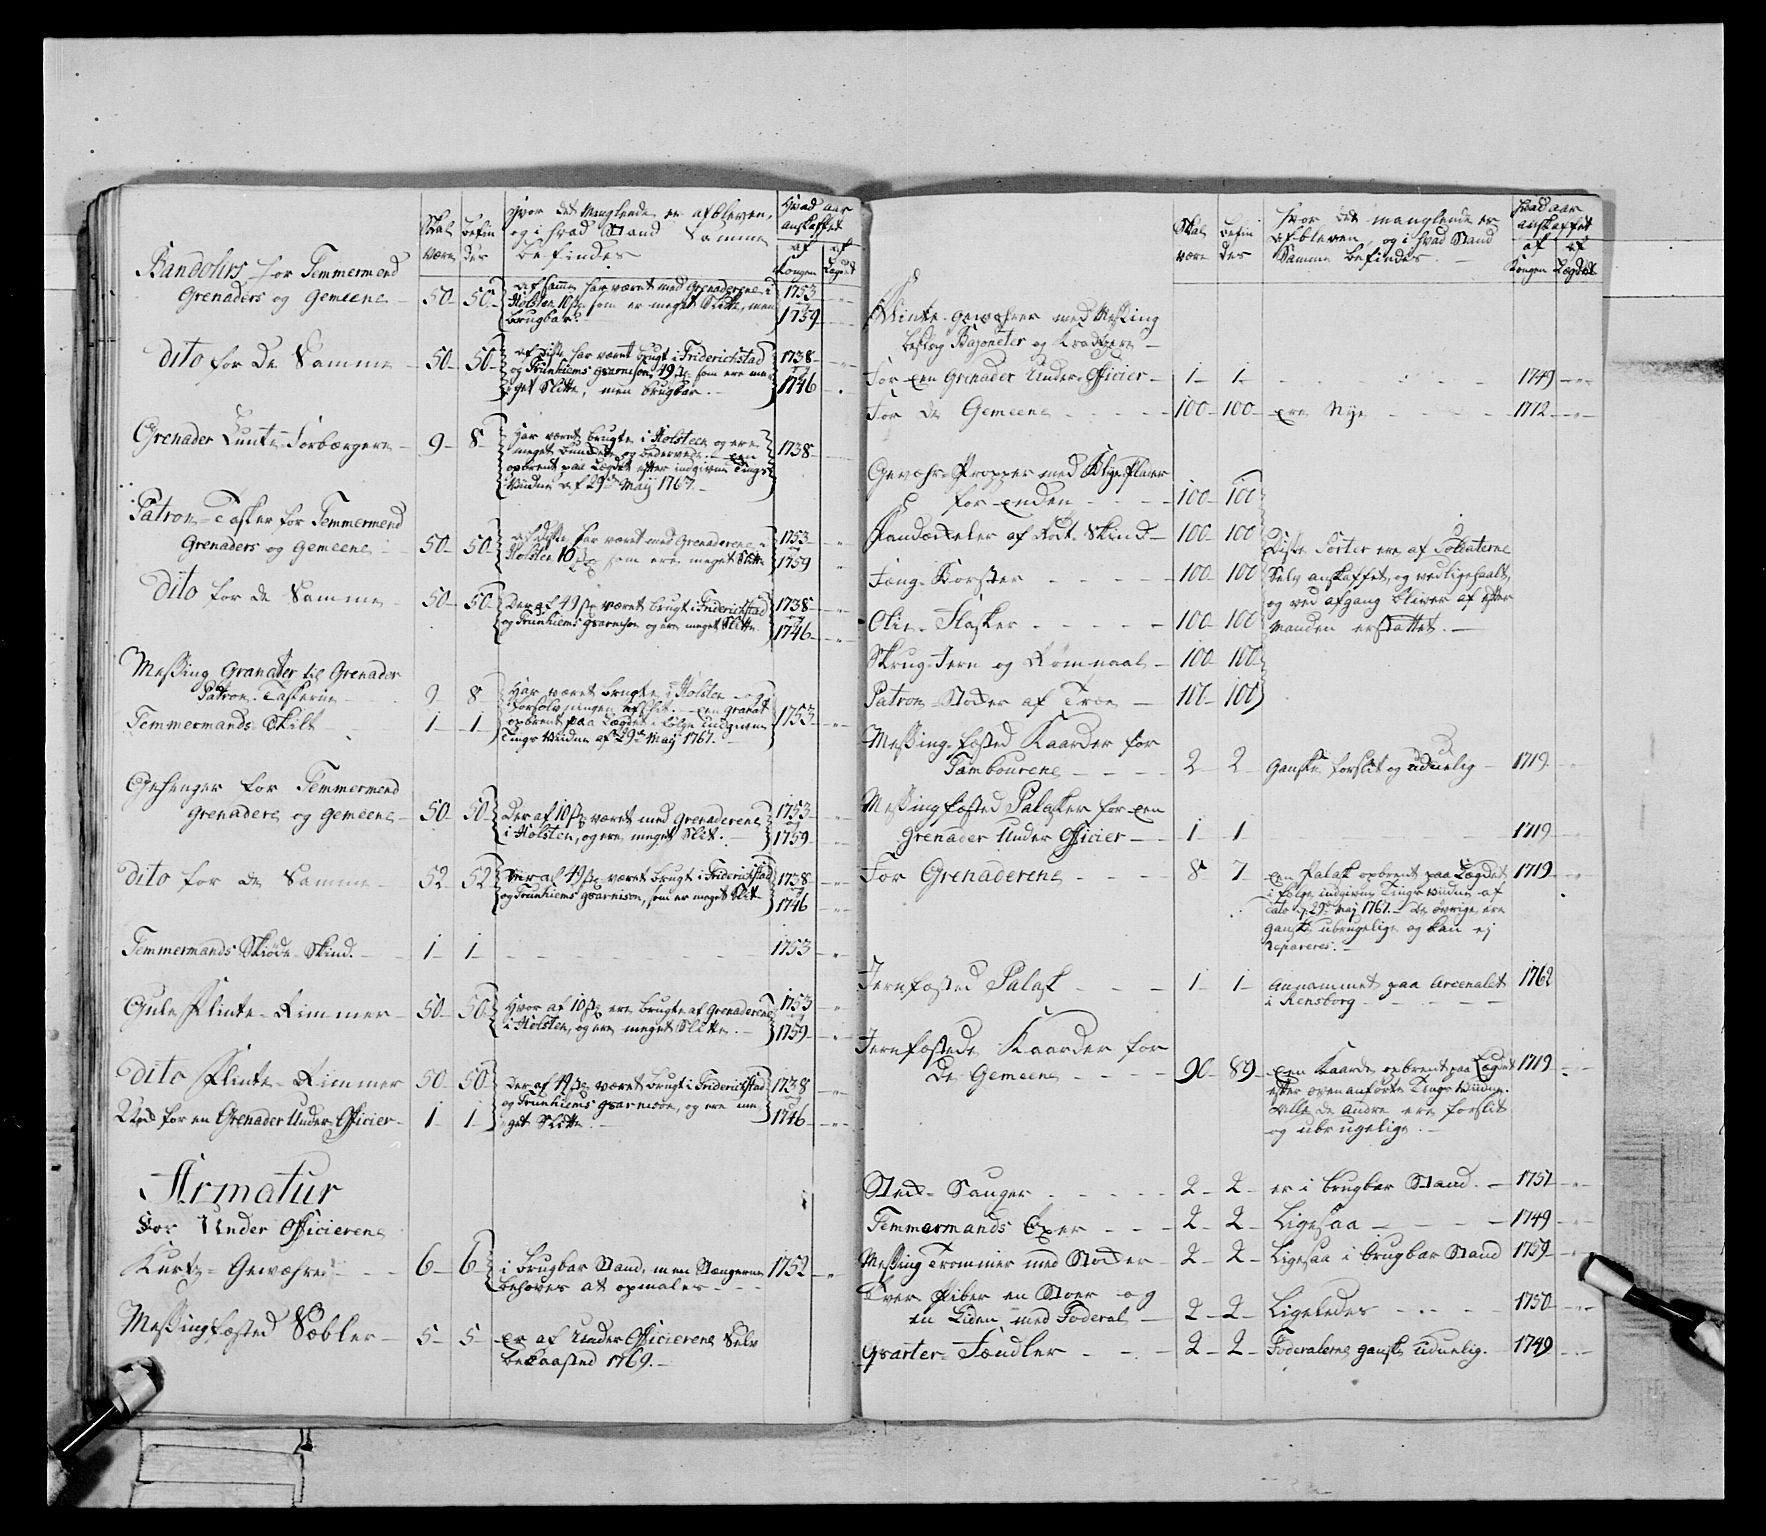 Skal være
Befindes
Hvor det Manglende er afbleven,
og i hvad Stand Samme
befindes
Hvad aar
anskaffet
af Kongen
af Lægdet
Bandolirs for Temmermend
Grenaders og Gemeene 50 50
af samme har været med Grenaderene i
Holsten 10 som er meget Slitte, men
brugbar
1753
og
1759
dito for de Samme 50 50
af diste har været brugt i Friderichstad
og Trunhiems Gvarnison 49 som ere me-
get Slitte, men brugbar.
1738
og
1746
Grenader Lunte-Forbærgere 9 8
Har været brugte i Holsteen og ere
meget og bedervede. Een
opbrent paa Lægdet efter indgivne Tings
Vidne af 29de Maij 1767.
1738
Patron-Tasker for Temmermend
Grenaders og Gemeene 50 50
af diste har været med Grenaderene i
Holsten 10 som ere meget Slitte
1753
og
1759
dito for de Samme 50 50
Der af 49 været brugt i Friderichstad
og Trunhiems Gvarnison og ere meget Slitte.
1738
og
1746
Messing Granater til Grenader
Patron-Taskerne 9 8
Temmermands-Skilt 1 1
Har været brugte i Holsten og
Forsølvningen afslit. Een Granat
opbrent paa Lægdet i følge Indgivne
Tings Vidne af 29de Maij 1767.
1753
Gehenger for Temmermend
Grenadere og Gemeene 50 50
Der af 10 været med Grenaderene
i Holsten, og ere meget Slit.
1753
og
1759
dito for de Samme 52 52
Der af 49 været brugt i Friderichstad
og Trunhiems Gvarnison, som er meget Slit
1738
og
1746
Temmermands Skiøde-Skind. 1 1 1753
Gule Flinte-Rimmer 50 50
Hvor af 10 ere brugte af Grenaderene
i Holsten, og ere meget Slitte.
1753
og
1759
dito Flinte-Rimmer 50 50
Der af 49 været brugt i Friderichstad
og Trunhiems Gvarnison, og ere me-
get Slitte.
1738
og
1746
for en Grenader Under Officier 1 1
Armatur
For Under Officierene
Kurtz-Gewæhre 6 6
i brugbar Stand, men Stængerne
behøves at opmales
1752
Messingfæsted Sæbler 5 5
er af Under Officierene Selv
bekaasted 1769.
Skal være
Befindes
Hvor det manglende er
afbleven, og i hvad Stand
Samme befindes.
Hvad aar
anskaffet
af Kongen
af Lægdet
Flinte-gewæhrer med Messing
beslag Bajoneter og Kradsere
For een Grenader Under Officier 1 1 1749
For de Gemeene 100 100 ere Nye 1772
Gewæhr-Propper med Flaier
for enden 100 100
Pandedeeler af Rødt Skind 100 100
Fæng-Borster 100 100
Olie-Flasker 100 100
Skrug-Jern og Rømnaal 100 100
Patron-Stokker af Træe 100 100
Diste Sorter ere af Soldaterne
Selv anskaffet, og vedligeholt,
og ved afgang bliver af efter
Manden erstattet.
Messing-fæsted Kaarder for
Tambourene 2 2 Ganske forslit og uduelig 1719
Messingfæsted Palasker for een
Grenader Under Officier 1 1 1719
For Grenaderene 8 7
een Palask opbrent paa Lægdet
i følge indgivne Tings Vidne af
Dato 29de Maij 1767. De øvrige ere
ganske ubrugelige og kan ej
repareres.
1719
Jernfæsted Palask 1 1
annammet paa Arcenalet
i Rensborg
1762
Jernfæstede Kaarder for
de Gemeene 90 89
een Kaarde opbrent paa Lægdet
efter ovenanførte Tings Vidne.
Alle de andre ere forslit
og ubrugelige.
1719
Sted-Sauger 2 2 er i brugbar Stand. 1757
Temmermands Øxer 2 2 Ligesaa 1749
Messing Trommer med Stokker 2 2 Ligesaa i brugbar Stand 1759
Tver Piber en Stoer og
en Liden med Foderal 2 2 Ligeledes 1750
Qvarter-Fændler 2 2 Foderalerne ganske uduelig. 1749